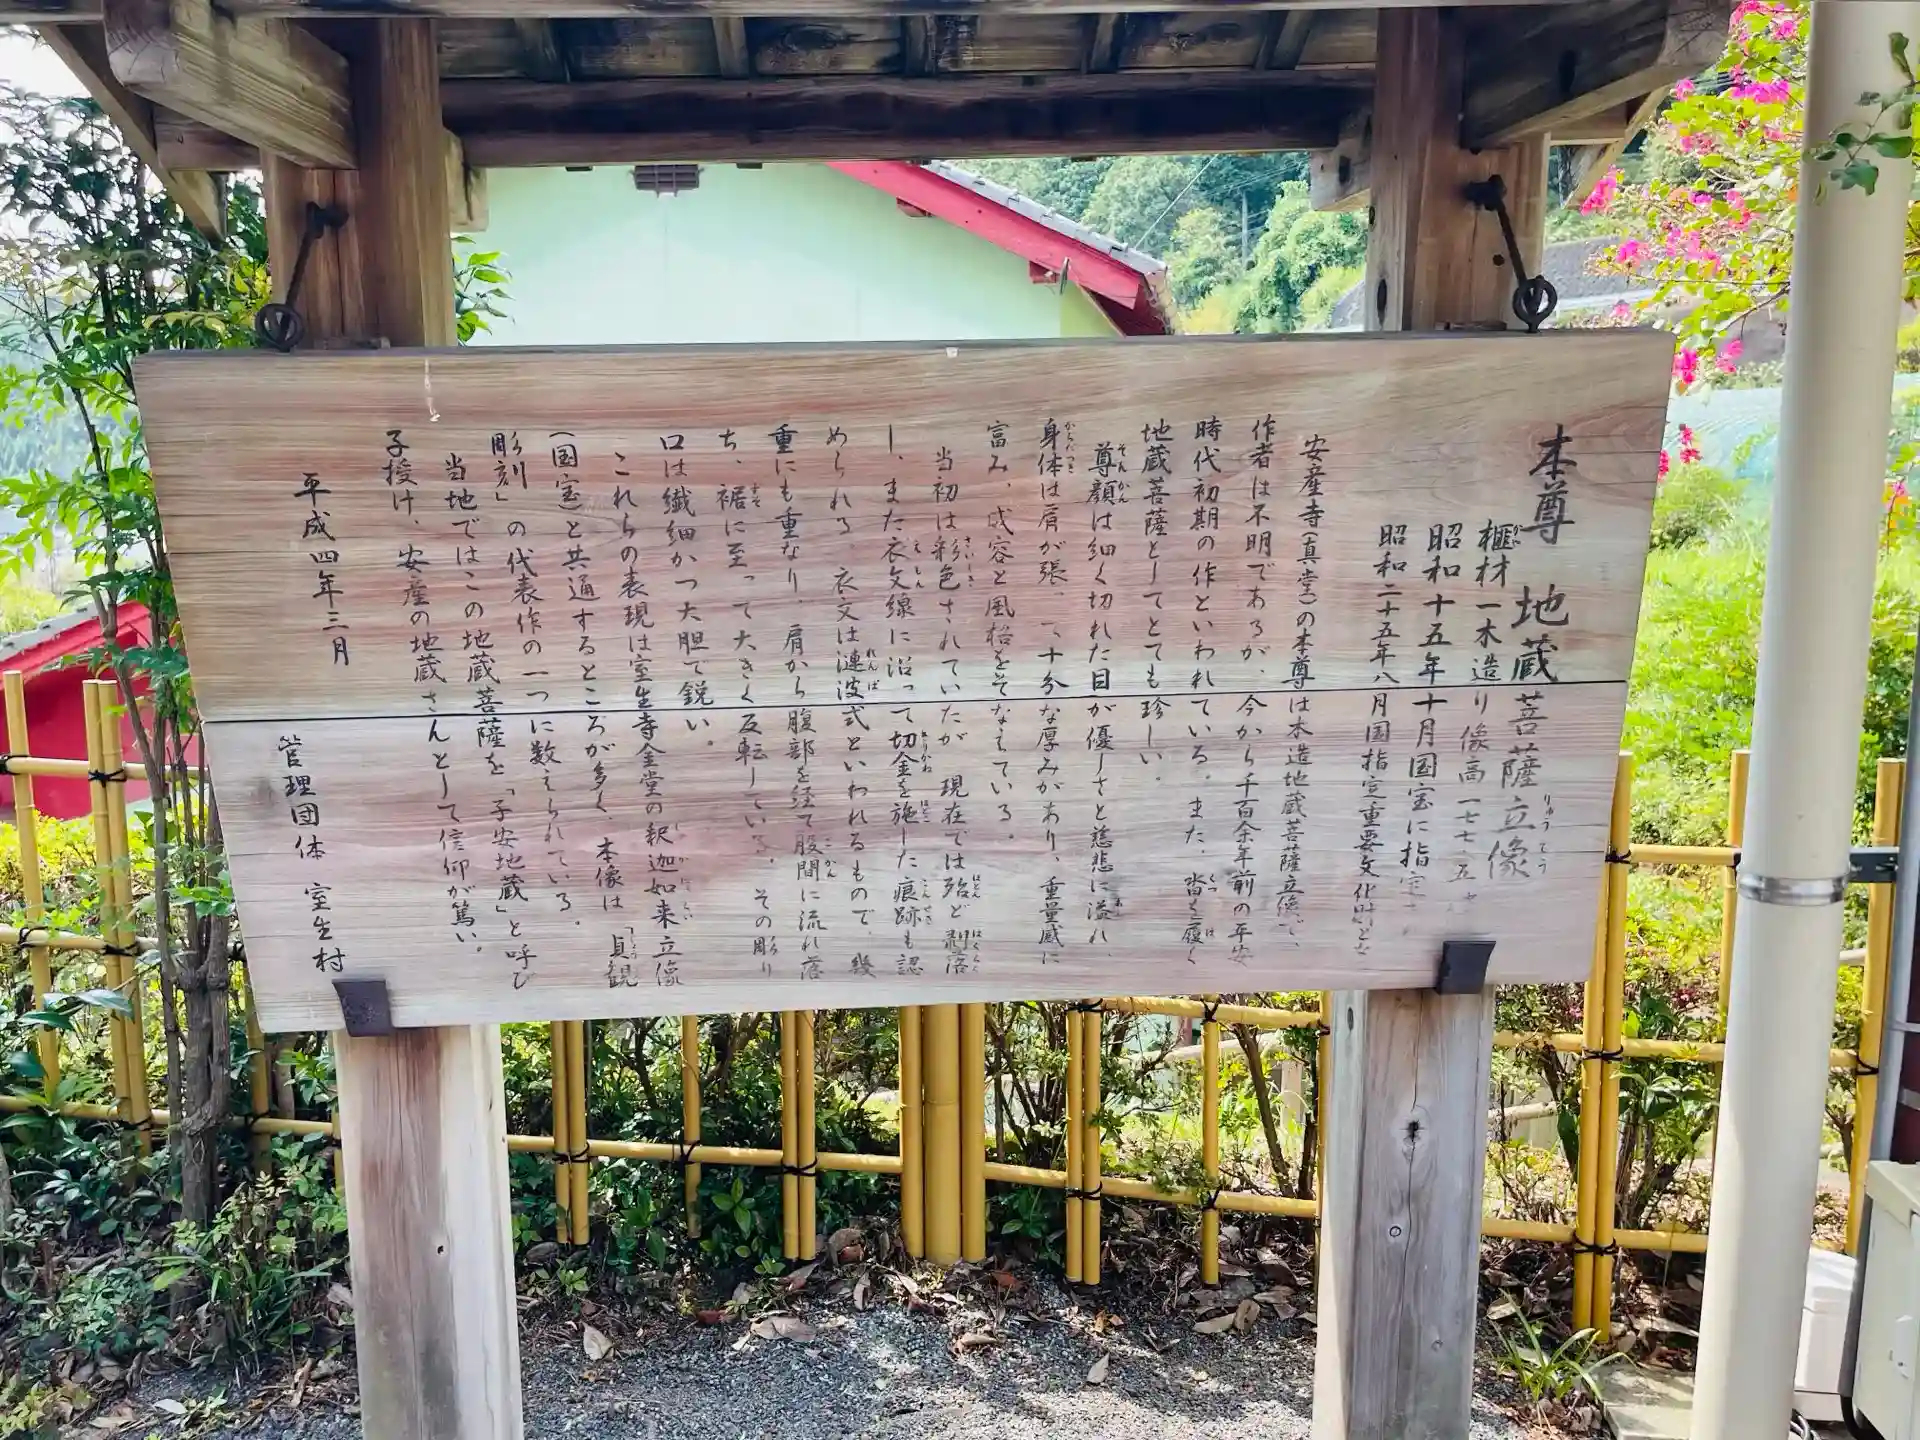 本尊 地蔵菩薩立像
榧材一木造り 像高一七七.五
昭和十五年十月国宝に指定
昭和二十五年八月国指定重要文化財と
安産寺(真堂)の本尊は木造地蔵菩薩立像で、
作者は不明であるが、今から千百余年前の平安
時代初期の作といわれている。また、沓を履く
地蔵菩薩としてとても珍しい。
尊顔は細く切れた目が優しさと慈悲に溢れ、
身体は肩が張って十分な厚みがあり、重量感に
富み、威容と風格をそなえている。
当初は彩色されていたが 現在では殆ど剥落
し、また衣文線に沿って切金を施した痕跡も認
められる。衣文は漣波式といわれるもので、幾
重にも重なり、肩から腹部を経て股間に流れ落
ち、裾に至って大きく反転している。その彫り
口は繊細かつ大胆で鋭い。
これらの表現は室生寺金堂の釈迦如来立像
(国宝)と共通するところが多く、本像は「貞観
彫刻」の代表作の一つに数えられている。
当地ではこの地蔵菩薩を「子安地蔵」と呼び
子授け、安産の地蔵さんとして信仰が篤い。
平成四年三月
管理団体 室生村